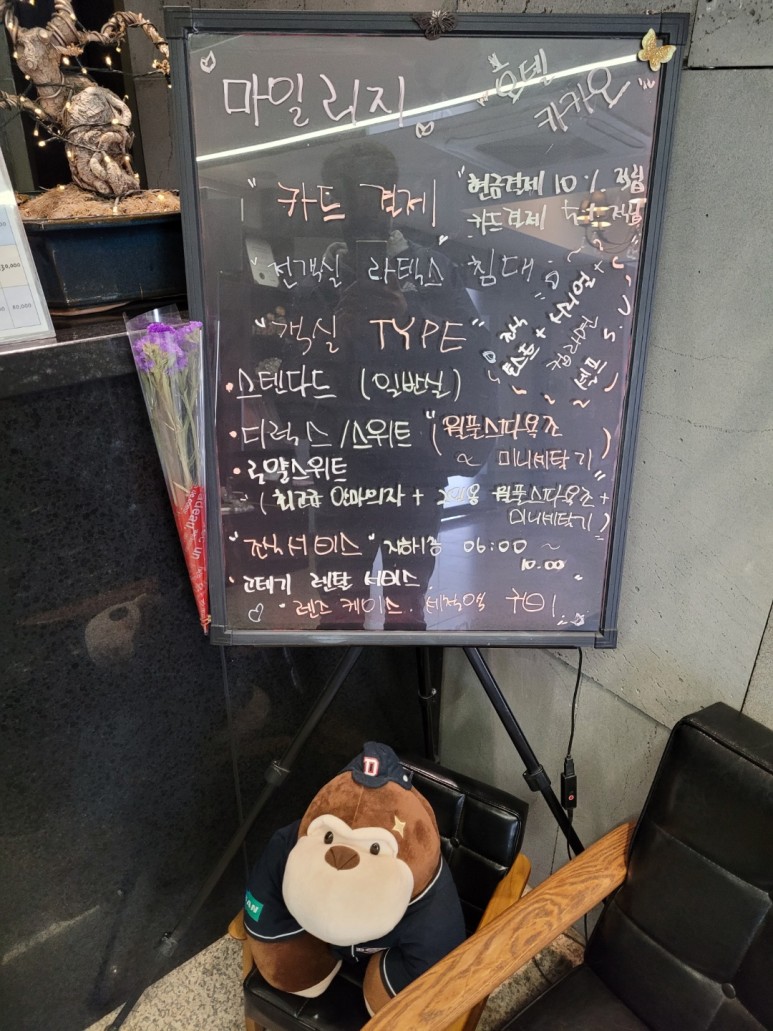 "마일리지" "호텔
카카오"
"카드 결제" "현금결제 10% 적립
카드결제 적립
"전객실 라텍스 침대"
"객실 TYPE"
조식
토스트 + 시리얼 +
컵라면
·스텐다드 (일반실)
·디럭스/스위트 ("월풀스파욕조
~ 미니세탁기)
·로얄스위트
~(최고급 안마의자 + 2인용 월풀스파욕조 +
미니세탁기)"
"조식서비스" 지하1층 06:00 ~
10.00
·고데기 렌탈 서비스.
·렌즈 케이스. 세척액 구비.
D